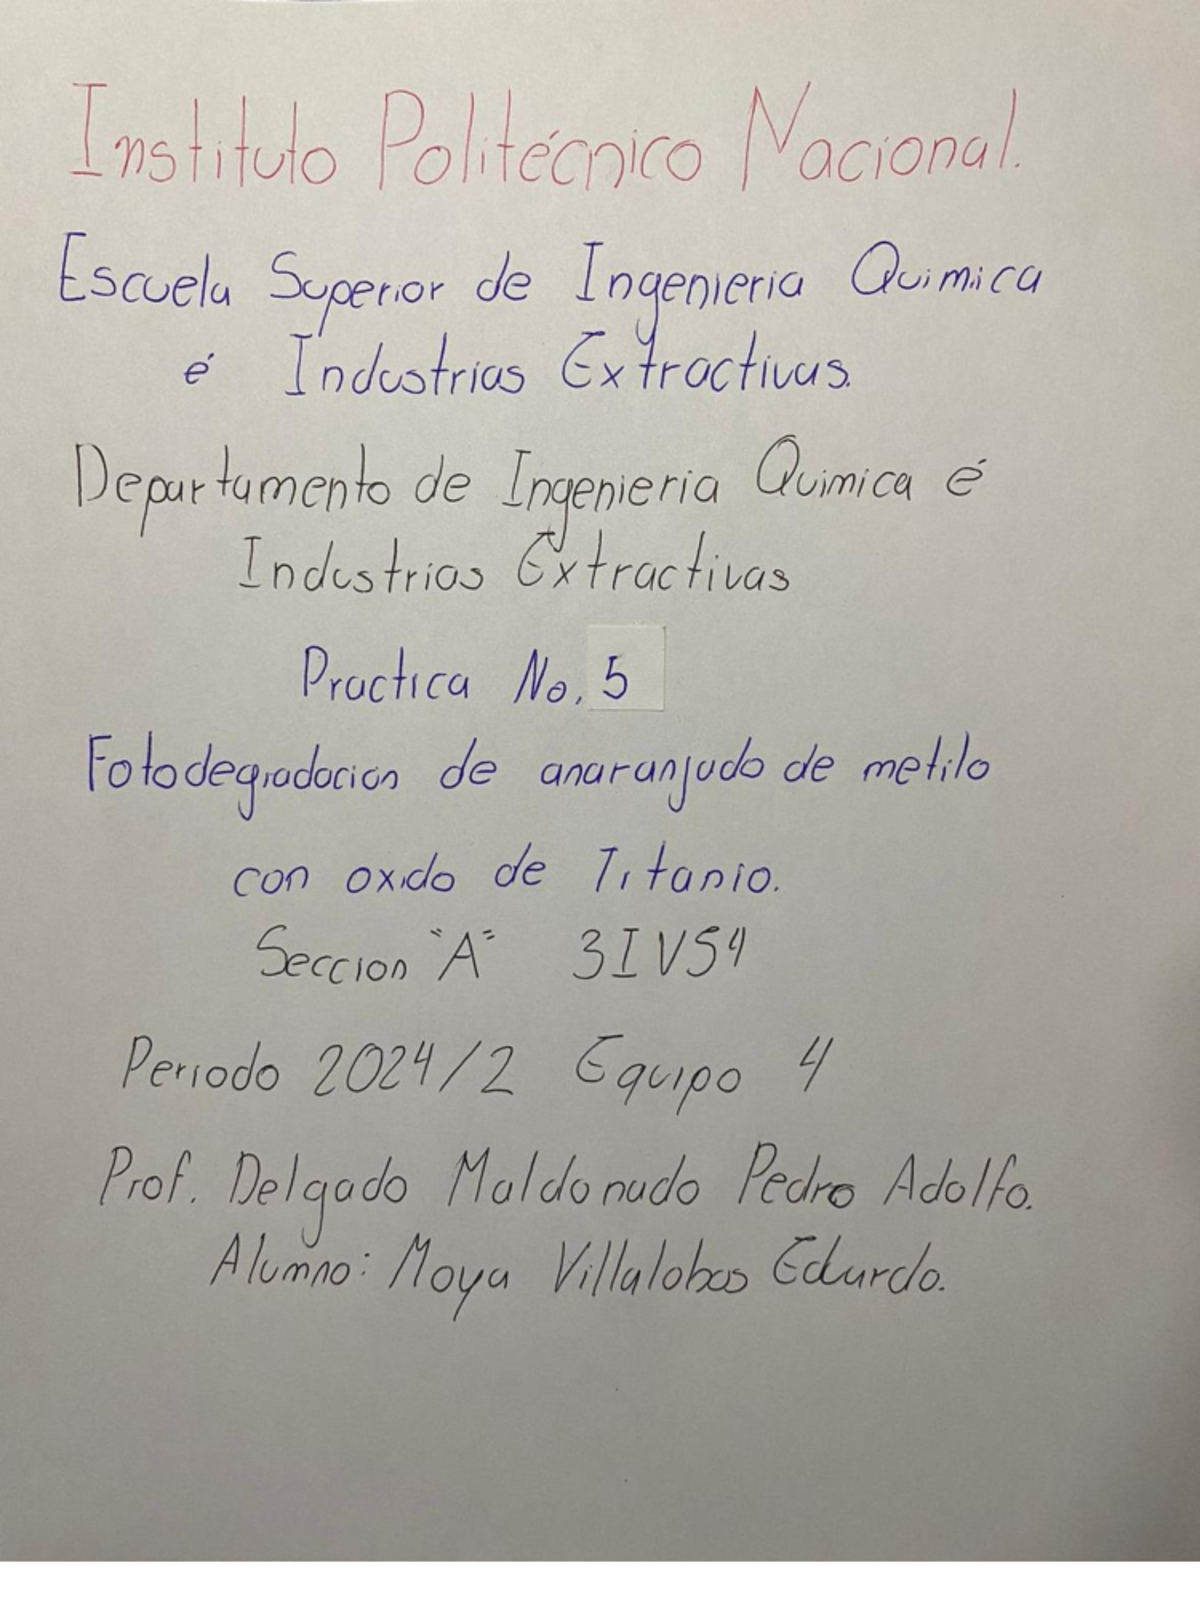 Instituto Politécnico Nacional.
Escuela Superior de Ingenieria Quimica
é Industrias Extractivas.
Departamento de Ingenieria Quimica é
Industrias Extractivas
Practica No. 5
Fotodegradacion de anaranjado de metilo
con oxido de Titanio.
Seccion "A" 3IV54
Periodo 2024/2 Equipo 4
Prof. Delgado Maldonado Pedro Adolfo.
Alumno: Moya Villalobos Eduardo.